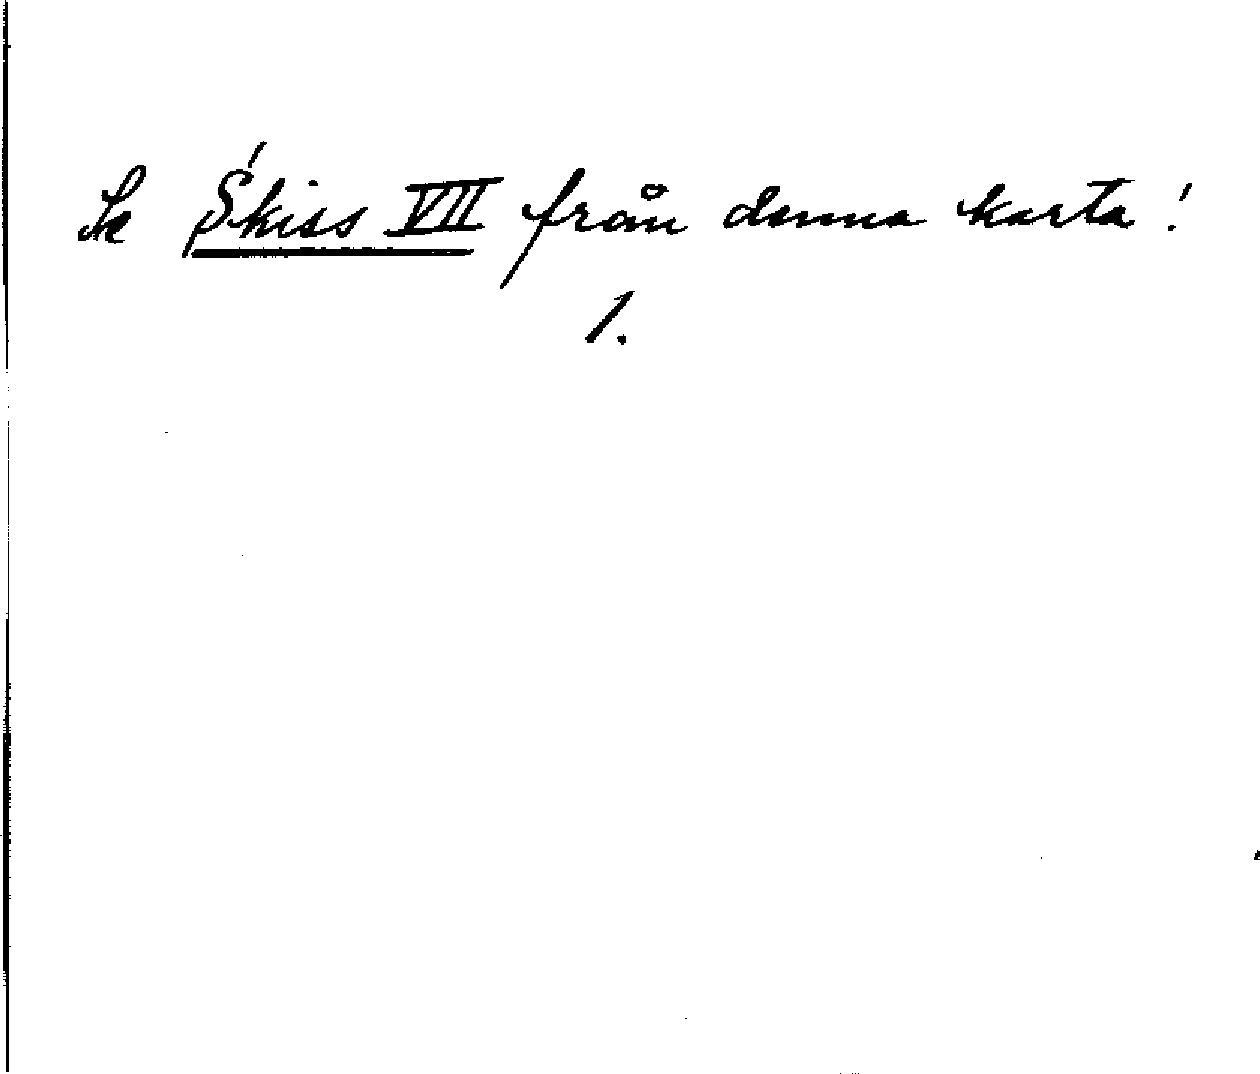 Se Skiss VII från denna karta!
1.